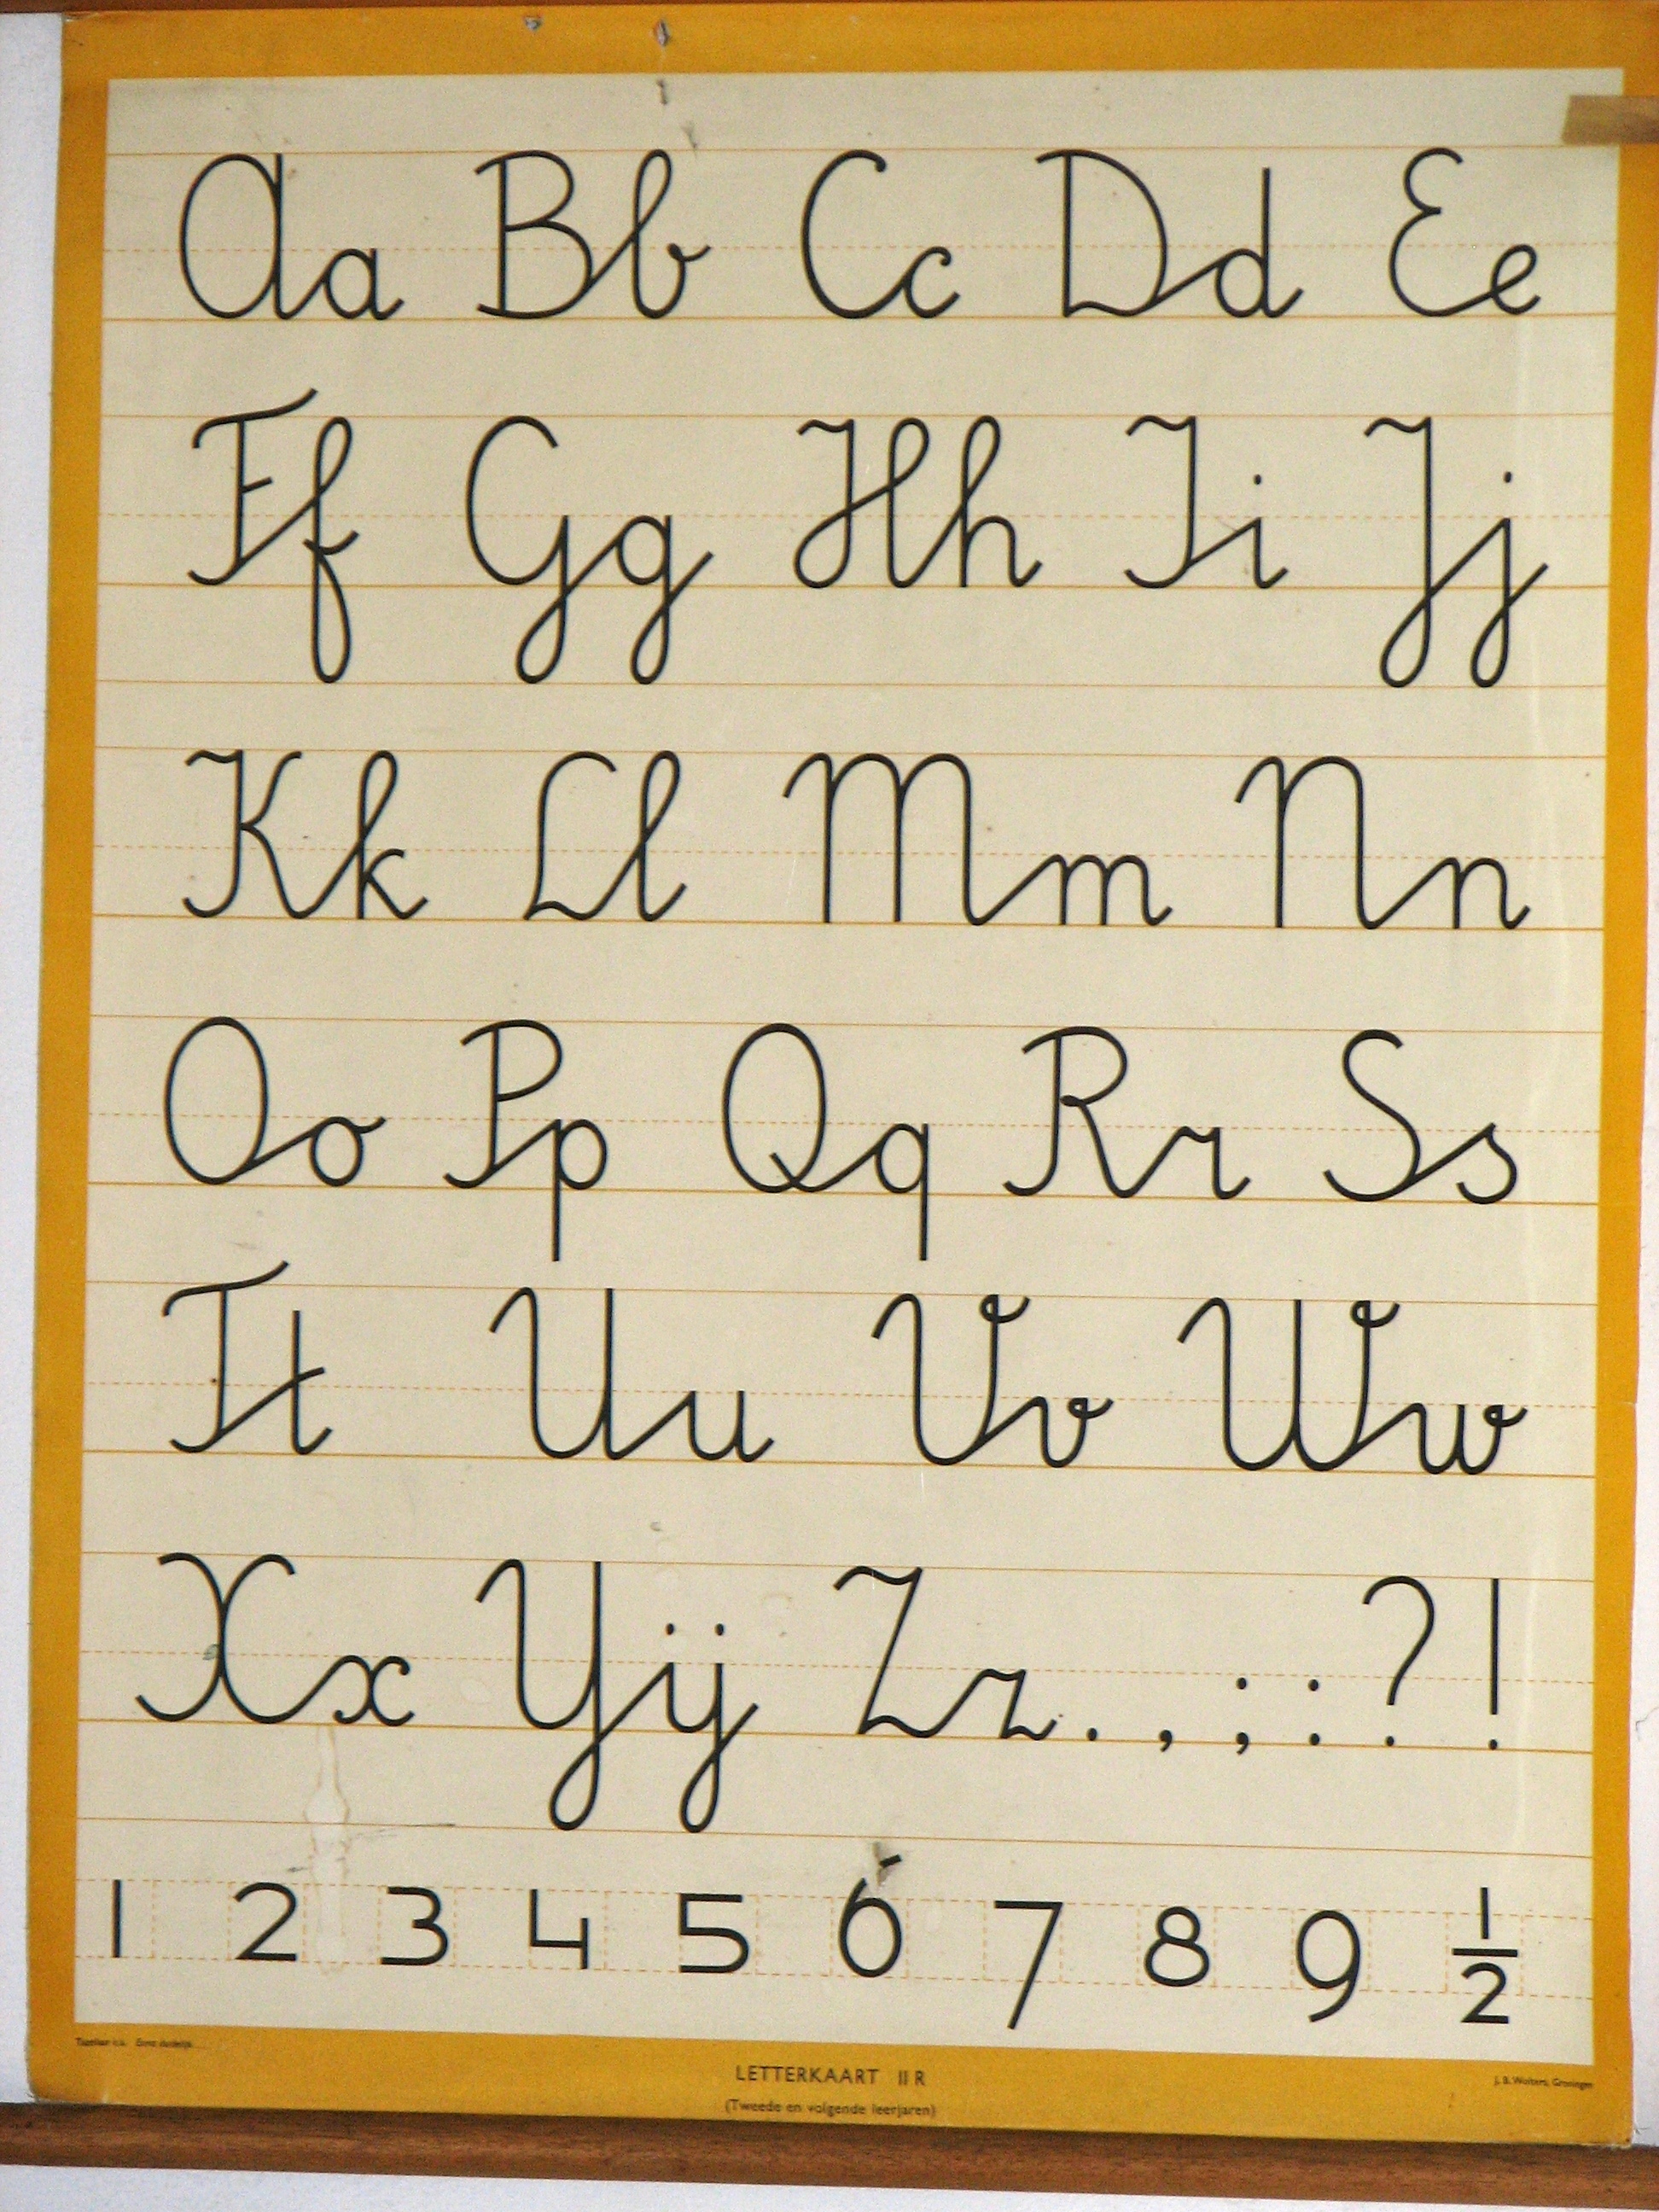 Aa Bb Cc Dd Ee
Ff Gg Hh Ii Jj
Kk Ll Mm Nn
Oo Pp Qq Rr Ss
Tt Uu Vv Ww
Xx Yij Zz . , ; : ? !
1 2 3 4 5 6 7 8 9 ½
LETTERKAART II R
(Tweede en volgende leerjaren)
J. B. Wolters, Groningen